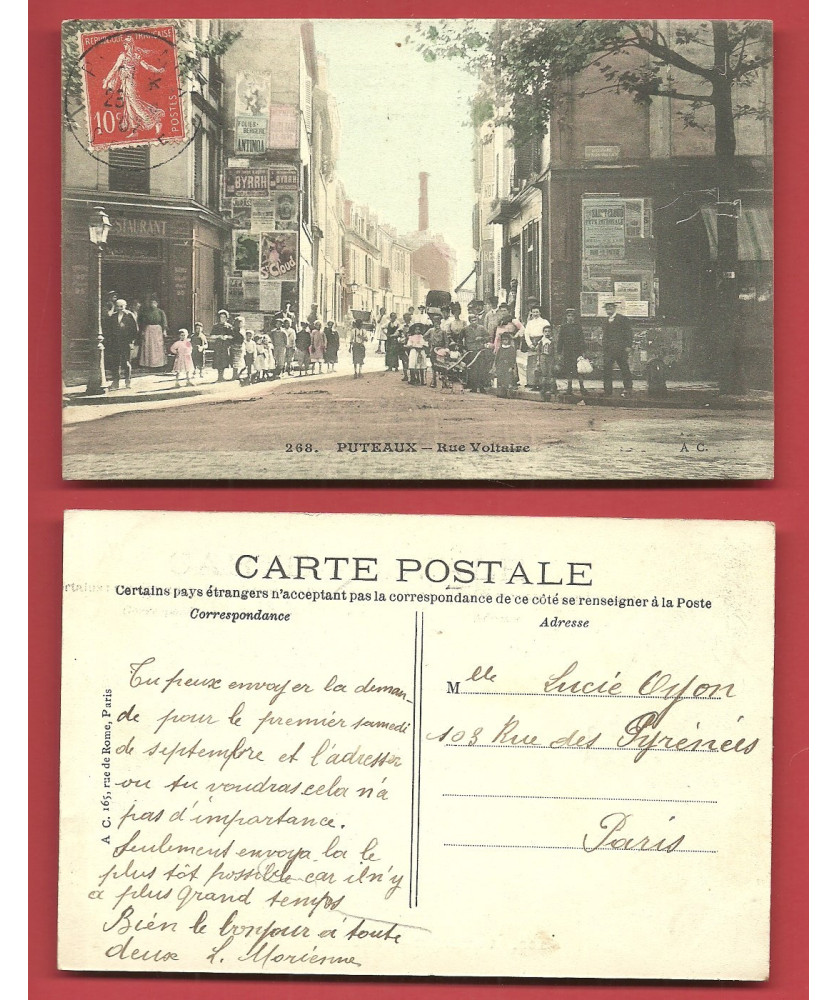 REPUBLIQUE FRANÇAISE
10c
POSTES
25
FOLIES
BERGERE
ANTINOA
BYRRH
BYRRH
St Cloud
RESTAURANT
ST CLOUD
268. PUTEAUX – Rue Voltaire
A C.
CARTE POSTALE
Certains pays étrangers n'acceptant pas la correspondance de ce côté se renseigner à la Poste
Correspondance
Adresse
A C. 165, rue de Rome, Paris
Tu peux envoyer la deman-
de pour le premier samedi
de septembre et l'adresser
ou tu voudras cela n'a
pas d'importance.
Seulement envoya la le
plus tôt possible car il n'y
a plus grand temps
Bien le bonjour à toute
deux L. Morienne
Mlle Lucie Oyon
103 Rue des Pyrénées
Paris